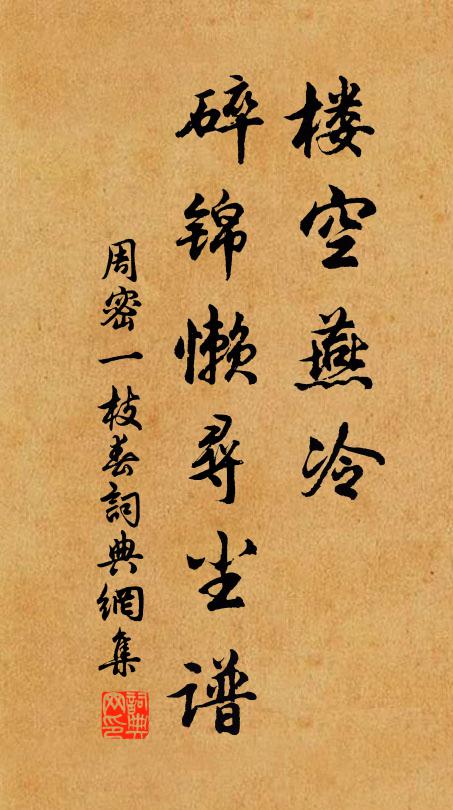 楼空燕冷
碎锦懒尋尘谱
周密一枝春詞典網集
詞典网印